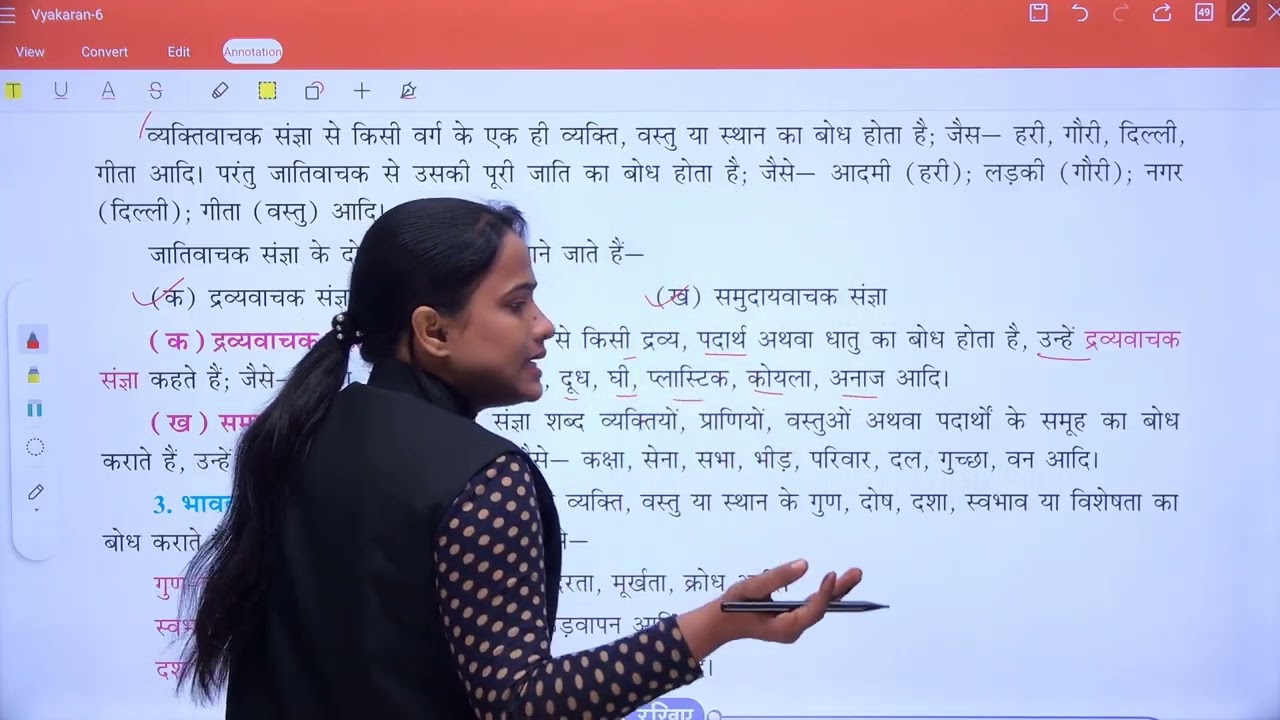 Vyakaran-6
49
View Convert Edit Annotation
T U A S
व्यक्तिवाचक संज्ञा से किसी वर्ग के एक ही व्यक्ति, वस्तु या स्थान का बोध होता है; जैस— हरी, गौरी, दिल्ली,
गीता आदि। परंतु जातिवाचक से उसकी पूरी जाति का बोध होता है; जैसे— आदमी (हरी); लड़की (गौरी); नगर
(दिल्ली); गीता (वस्तु) आदि।
जातिवाचक संज्ञा के जाते हैं—
(क) द्रव्यवाचक (ख) समुदायवाचक संज्ञा
(क) द्रव्यवाचक से किसी द्रव्य, पदार्थ अथवा धातु का बोध होता है, उन्हें द्रव्यवाचक
संज्ञा कहते हैं; जैसे— दूध, घी, प्लास्टिक, कोयला, अनाज आदि।
(ख) संज्ञा शब्द व्यक्तियों, प्राणियों, वस्तुओं अथवा पदार्थों के समूह का बोध
कराते हैं, कक्षा, सेना, सभा, भीड़, परिवार, दल, गुच्छा, वन आदि।
3. व्यक्ति, वस्तु या स्थान के गुण, दोष, दशा, स्वभाव या विशेषता का
बोध कराते
मूर्खता, क्रोध